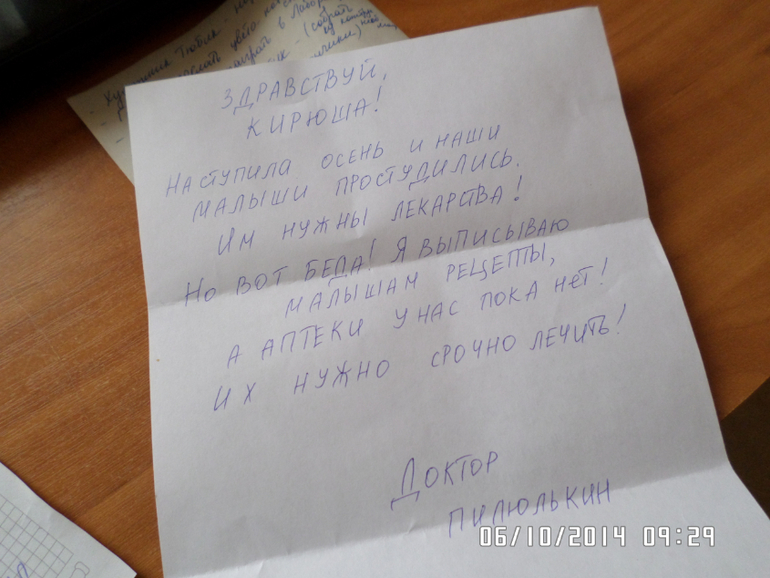 Художник Тюбик -
(собрать
ЗДРАВСТВУЙ,
КИРЮША!
НАСТУПИЛА ОСЕНЬ И НАШИ
МАЛЫШИ ПРОСТУДИЛИСЬ.
ИМ НУЖНЫ ЛЕКАРСТВА!
НО ВОТ БЕДА! Я ВЫПИСЫВАЮ
МАЛЫШАМ РЕЦЕПТЫ,
А АПТЕКИ У НАС ПОКА НЕТ!
ИХ НУЖНО СРОЧНО ЛЕЧИТЬ!
ДОКТОР
ПИЛЮЛЬКИН
06/10/2014 09:29